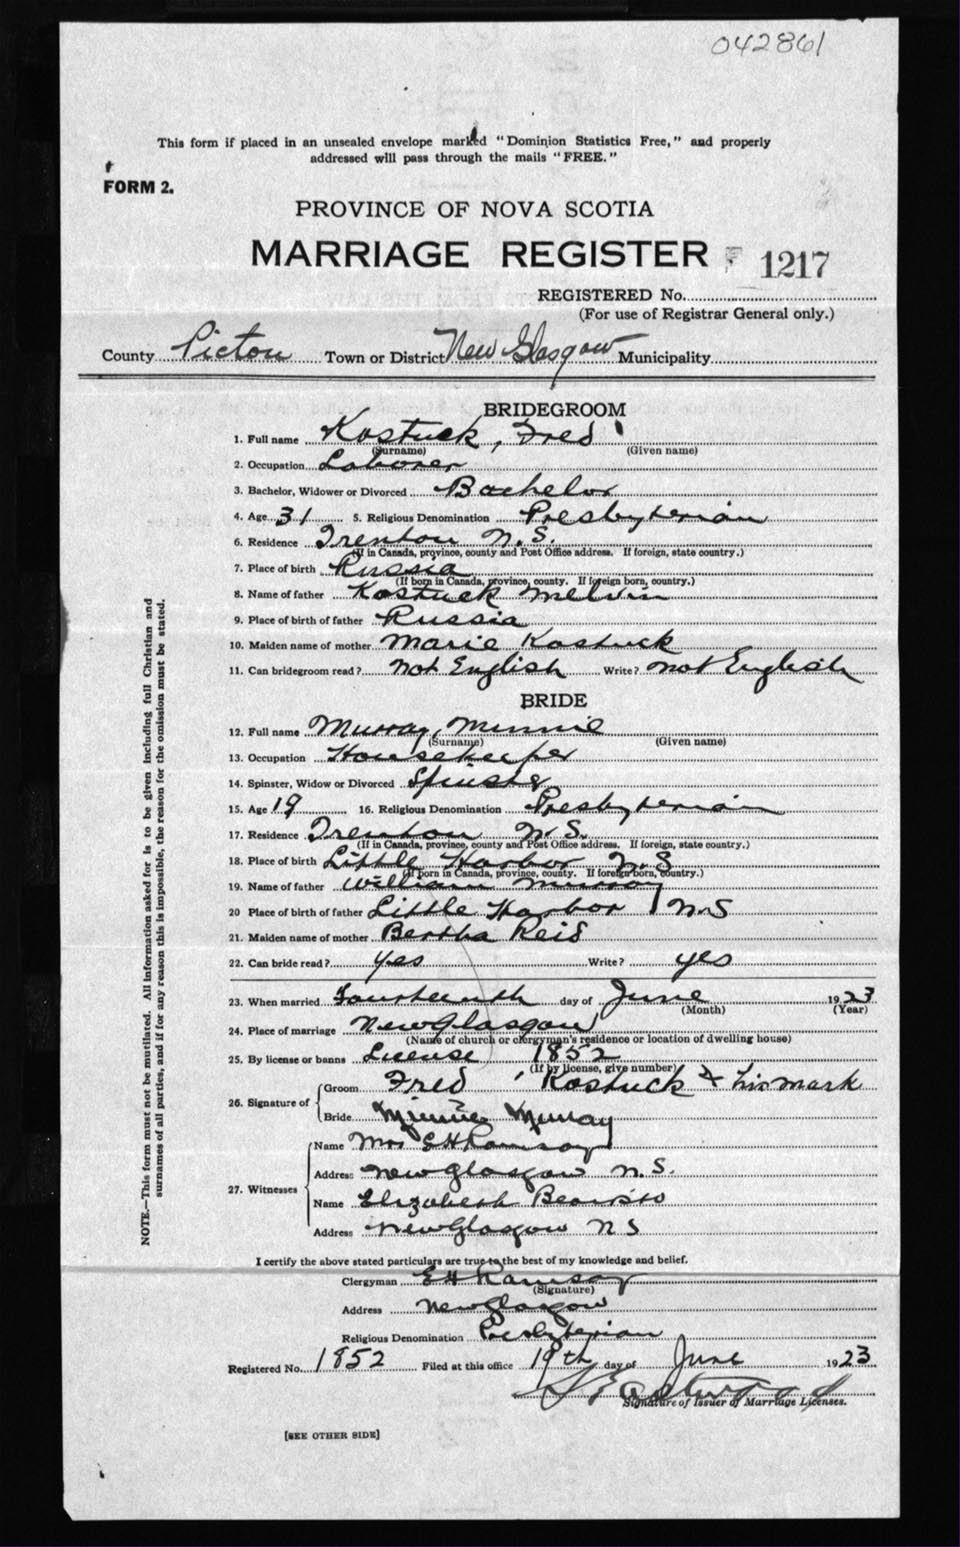 042861
This form if placed in an unsealed envelope marked "Dominion Statistics Free," and properly
addressed will pass through the mails "FREE."
FORM 2.
PROVINCE OF NOVA SCOTIA
MARRIAGE REGISTER
1217
REGISTERED No.
(For use of Registrar General only.)
County Pictou Town or District New Glasgow Municipality
BRIDEGROOM
1. Full name Kostuck, Fred
(Surname) (Given name)
2. Occupation Laborer
3. Bachelor, Widower or Divorced Bachelor
4. Age 31 5. Religious Denomination Presbyterian
6. Residence Trenton N.S.
(If in Canada, province, county and Post Office address. If foreign, state country.)
7. Place of birth Russia
(If born in Canada, province, county. If foreign born, country.)
8. Name of father Kostuck Melvin
9. Place of birth of father Russia
10. Maiden name of mother Marie Kostuck
11. Can bridegroom read? Not English Write? not English
BRIDE
12. Full name Murray, Minnie
(Surname) (Given name)
13. Occupation Housekeeper
14. Spinster, Widow or Divorced Spinster
15. Age 19 16. Religious Denomination Presbyterian
17. Residence Trenton N.S.
(If in Canada, province, county and Post Office address. If foreign, state country.)
18. Place of birth Little Harbor N.S
(If born in Canada, province, county. If foreign born, country.)
19. Name of father William Murray
20 Place of birth of father Little Harbor N.S
21. Maiden name of mother Bertha Reid
22. Can bride read? yes Write? yes
23. When married Fourteenth day of June 1923
(Month) (Year)
24. Place of marriage New Glasgow
(Name of church or clergyman's residence or location of dwelling house)
25. By license or banns License 1852
(If by license, give number)
26. Signature of
Groom Fred Kostuck X his mark
Bride Minnie Murray
27. Witnesses
Name Mrs E H Ramsay
Address New Glasgow N.S.
Name Elizabeth
Address New Glasgow N S
I certify the above stated particulars are true to the best of my knowledge and belief.
Clergyman E H Ramsay
(Signature)
Address New Glasgow
Religious Denomination Presbyterian
Registered No. 1852 Filed at this office 19th day of June 1923
Signature of Issuer of Marriage Licenses.
[SEE OTHER SIDE]
NOTE.—This form must not be mutilated. All information asked for is to be given including full Christian and
surnames of all parties, and if for any reason this is impossible, the reason for the omission must be stated.